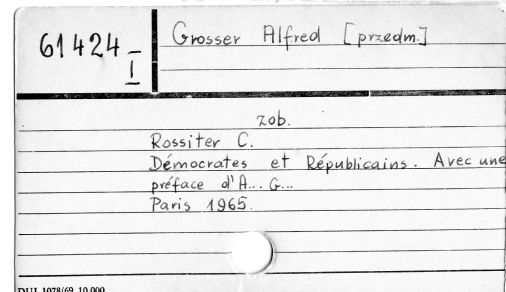 61424
I
Grosser Alfred [przedm.]
zob.
Rossiter C.
Démocrates et Républicains. Avec une
préface d'A... G...
Paris 1965.
DUJ 1078/69 10.000